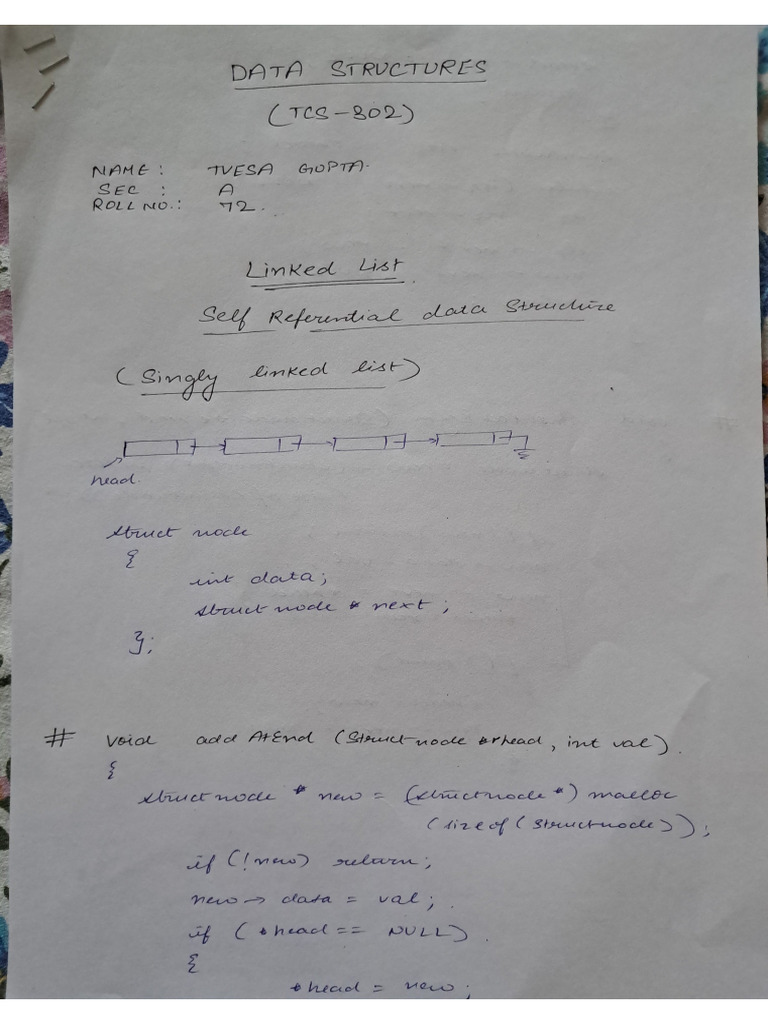 DATA STRUCTURES
(TCS-302)
NAME : TVESA GUPTA.
SEC : A
ROLL NO. : 72.
Linked List.
Self Referential data Structure
(Singly linked list)
head.
struct node
{
int data;
struct node * next;
};
# void addAtEnd (Struct node **head, int val).
{
struct node * new = (struct node *) malloc
(sizeof (struct node));
if (!new) return;
new → data = val;
if (*head == NULL).
{
*head = new;